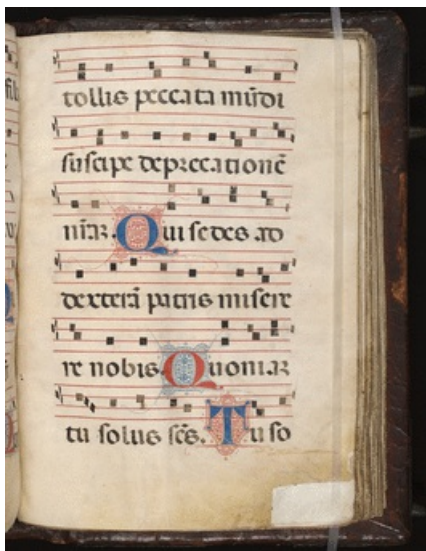 tollis peccata mūdi
suscipe deprecationē
nr̄aꝫ. Qui sedes ad
dexterā patris misere
re nobis. Quoniaꝫ
tu solus sc̄s. Tu so